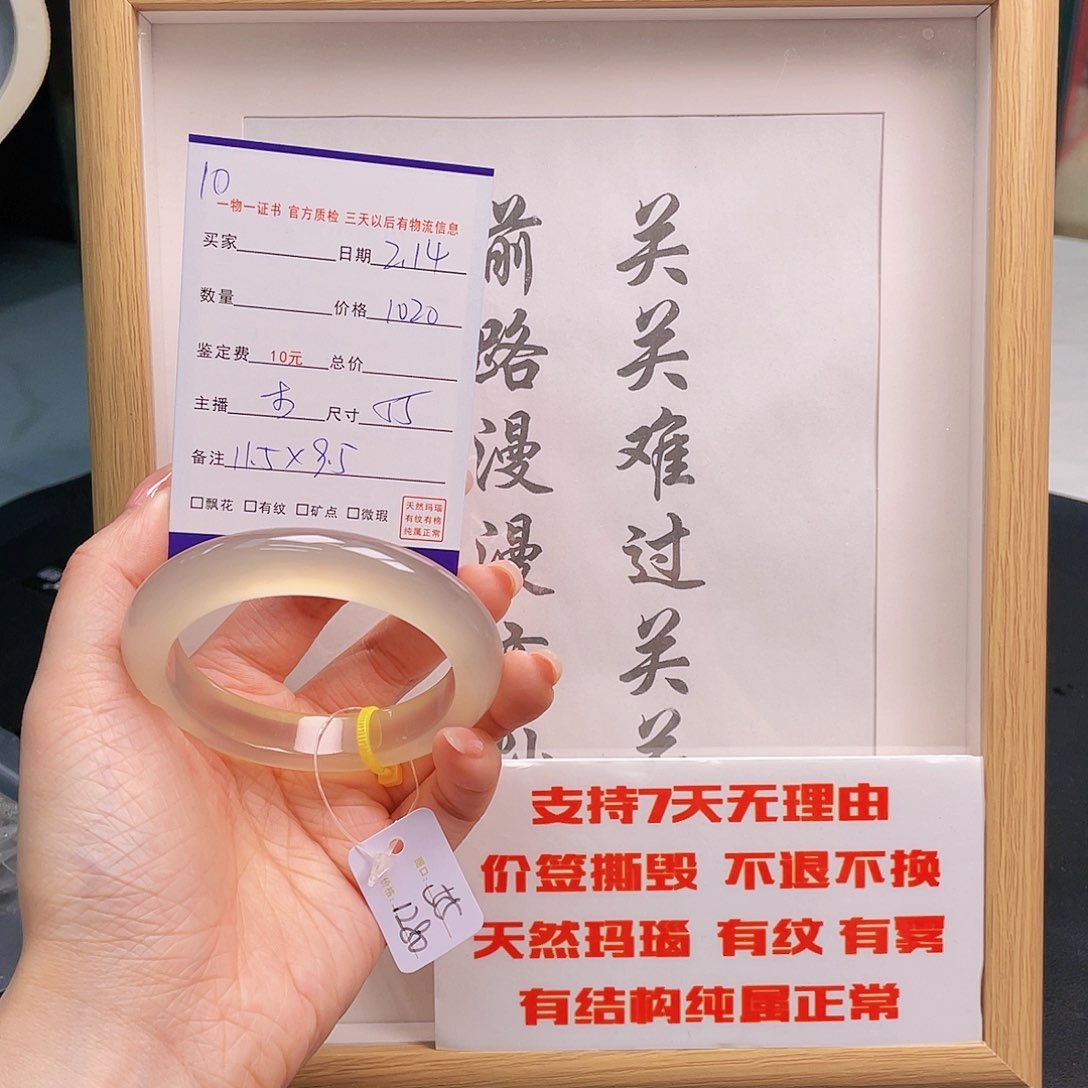 10
一物一证书 官方质检 三天以后有物流信息
买家 日期 2.14
数量 价格 1020
鉴定费 10元 总价
主播 尺寸 55
备注 11.5×9.5
□飘花 □有纹 □矿点 □微瑕
天然玛瑙
有纹有棉
纯属正常
关关难过关关
前路漫漫
圈口: 55
价格: 1280
支持7天无理由
价签撕毁 不退不换
天然玛瑙 有纹 有雾
有结构纯属正常